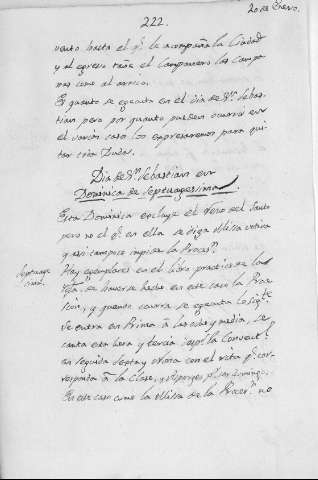 222.
20 de Enero.
viento hasta el q.l le acompaña la Ciudad
y al egreso tañe el Campanero las Camp.
nas como al arrivo.
Es quanto se executa en el dia de S.n Sebas-
tian pero por quanto pueden ocurrir en
el varios casos los expresaremos para qui-
tar toda Duda.
Dia de S.n Sebastian en
Dominica de Septuagesima.
Esta Dominica excluye el reso del Santo
pero no el q.e en ella se diga Missa votiva
y asi tampoco impide la Proces.n
Septuage
sima.
Hay exemplares en el libro practico de la
de haverse hecho en este caso la Proce-
sion, y quando ocurra se executa lo sig.te
Se entra en Prima à las ocho y media, se
canta esta hora y tercia la Convent.l
en seguida Sexta y Nona con el rito q.e cor-
responda à la Clase, y por ser domingo.
En este caso como la Missa de la Proces.n no